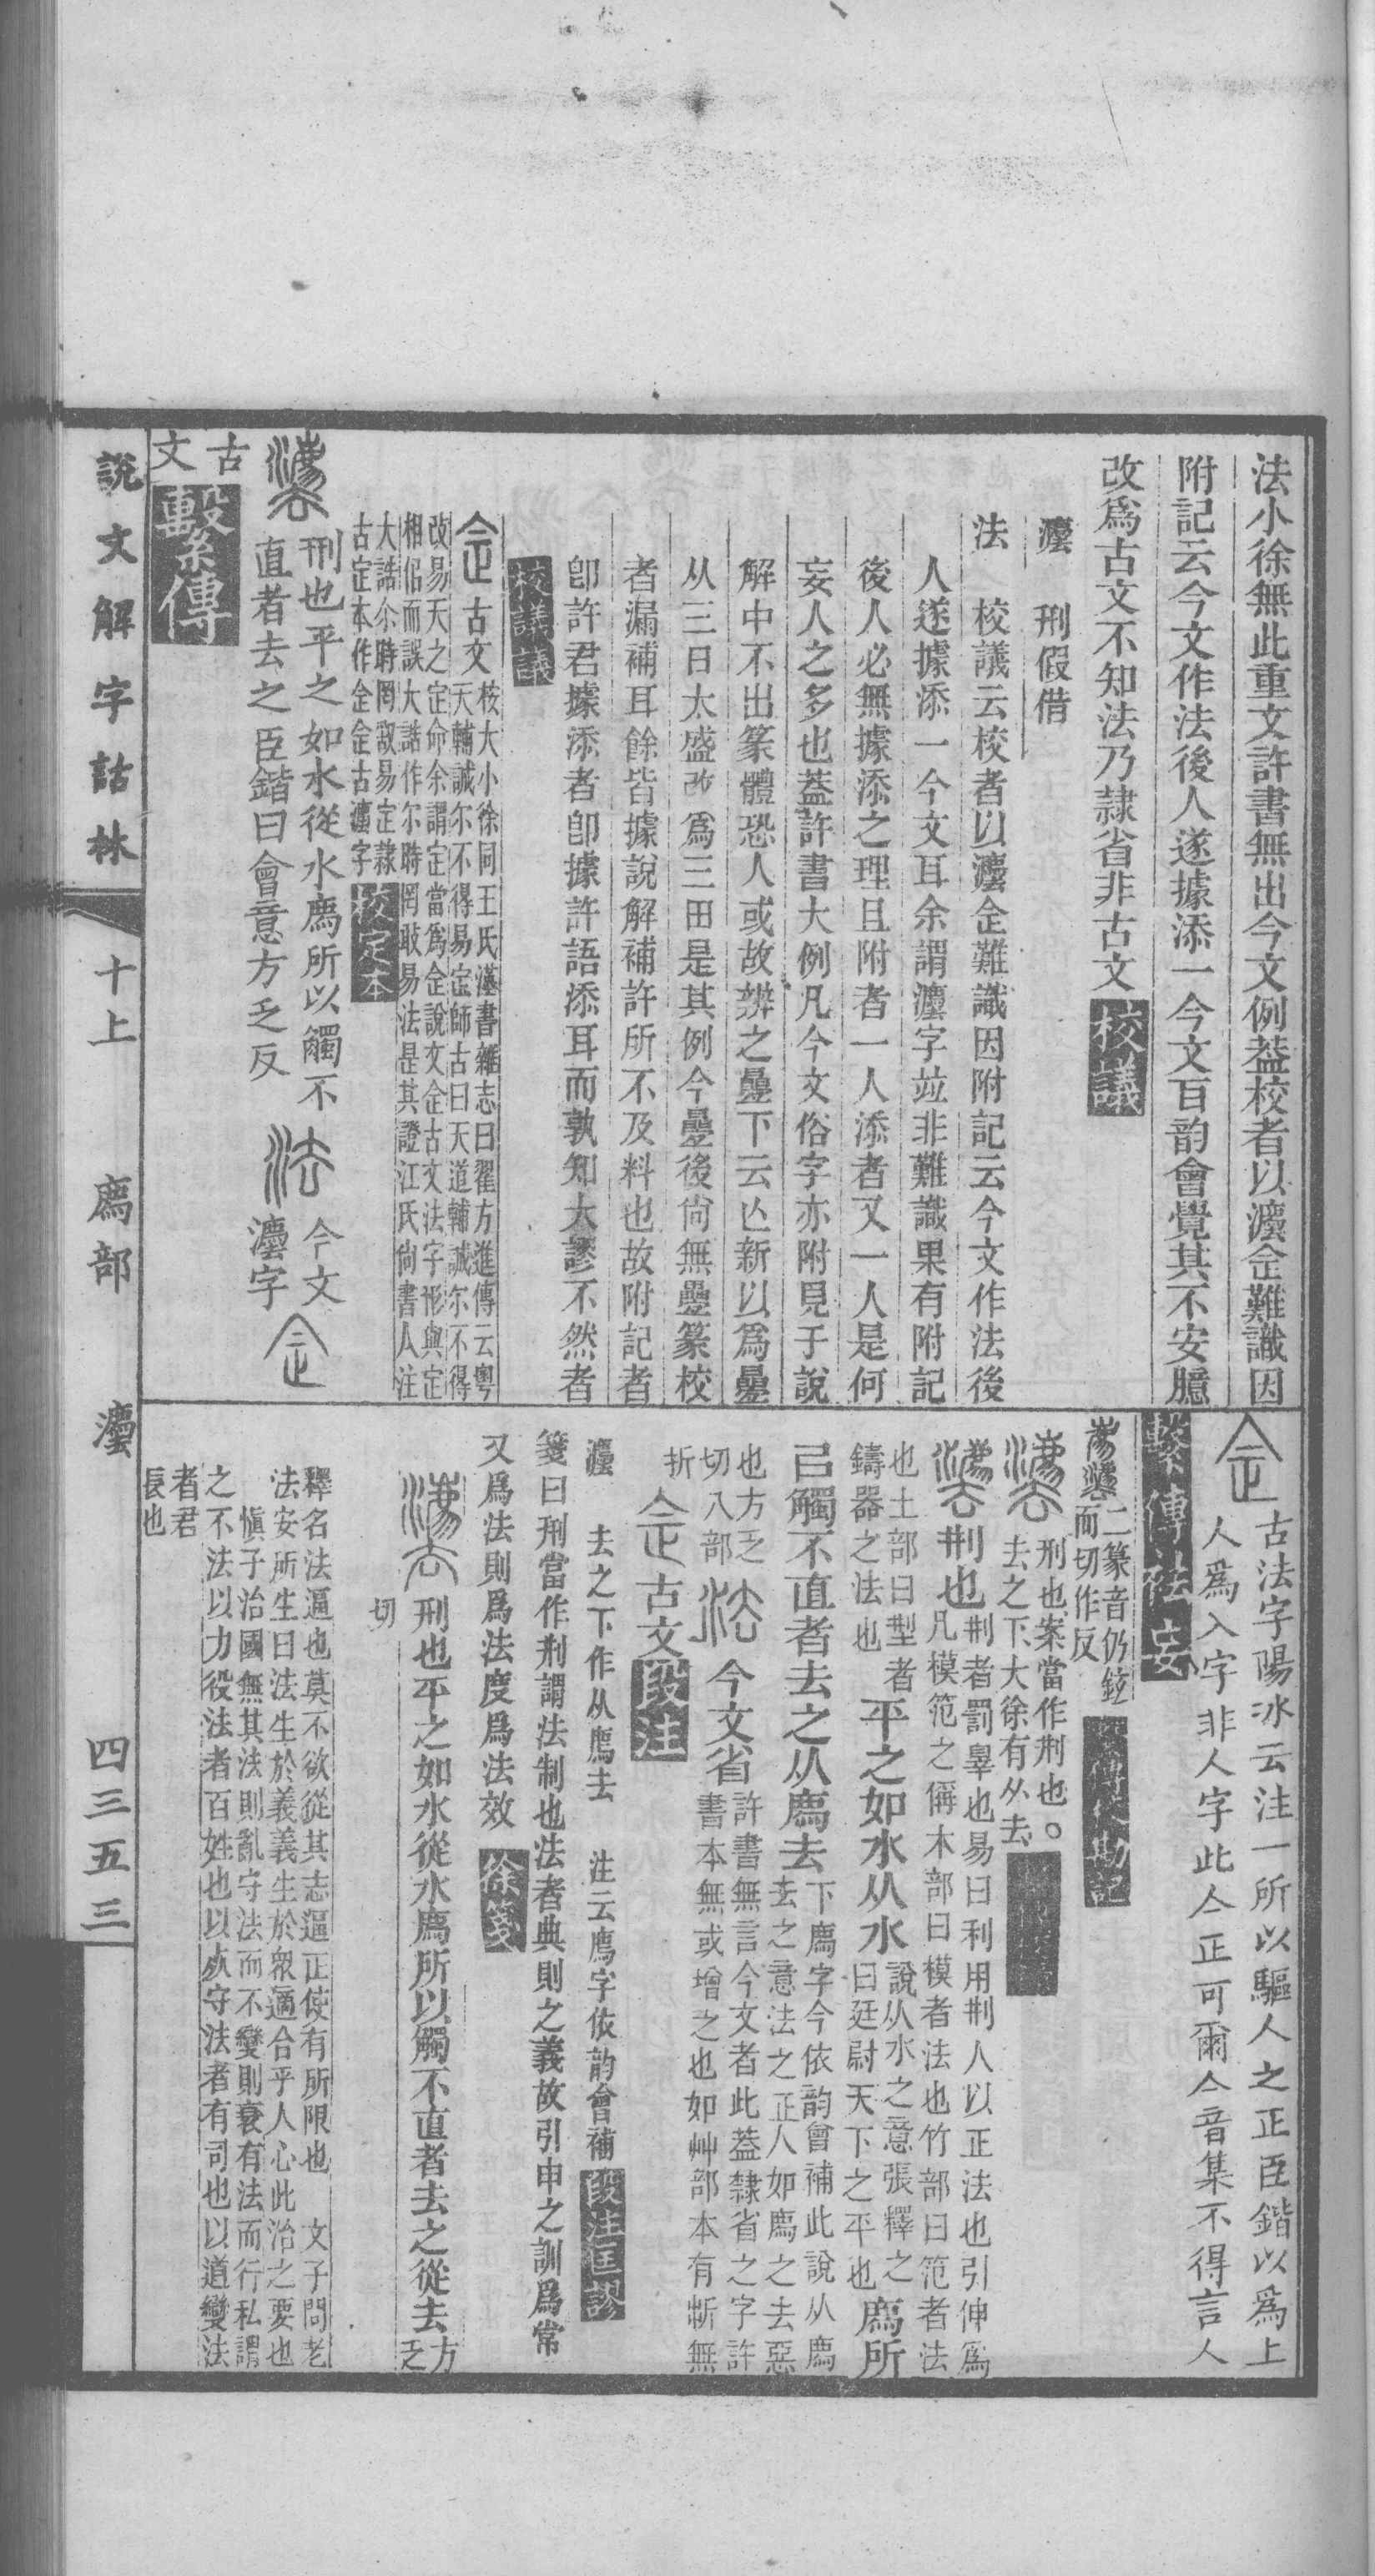 法小徐無此重文許書無出今文例葢校者以灋佱難識因
附記云今文作法後人遂據添一今文百韵會覺其不安臆
改爲古文不知法乃隷省非古文校議
灋　刑假借
法　校議云校者以灋佱難識因附記云今文作法後
人遂據添一今文耳余謂灋字竝非難識果有附記
後人必無據添之理且附者一人添者又一人是何
妄人之多也葢許書大例凡今文俗字亦附見于說
解中不出篆體恐人或故辨之曡下云亾新以爲曡
从三日太盛改爲三田是其例今曡後尙無疊篆校
者漏補耳餘皆據說解補許所不及料也故附記者
卽許君據添者卽據許語添耳而孰知大謬不然者
校議議
佱古文
核大小徐同王氏漢書雜志曰翟方進傳云粤
天輔誠尔不得易定師古曰天道輔誠尔不得
改易天之定命余謂定當爲佱說文佱古文法字形與定
相佀而誤大誥作尔時罔敢易法是其證江氏尙書人注
大誥尒時罔敢易定隷
古定本作佱佱古灋字校定本
灋
刑也平之如水從水廌所以觸不
直者去之臣鍇曰會意方乏反
法
今文
灋字
佱
古
文
繫傳
說文解字詁林
十上
廌部
灋
四三五三
佱
古法字陽冰云注一所以驅人之正臣鍇以爲上
人爲入字非人字此亼正可爾亼音集不得言人
繫傳祛妄
二篆音仍鉉
而切作反
繫傳校勘記
灋
刑也案當作荆也。
去之下大徐有从去
灋荆也
荆者罰辠也易曰利用荆人以正法也引伸爲
凡模范之偁木部曰模者法也竹部曰范者法
也土部曰型者
鑄器之法也
平之如水从水
說从水之意張釋之
曰廷尉天下之平也
廌所
㠯觸不直者去之从廌去
下廌字今依韵會補此說从廌
去之意法之正人如廌之去惡
也方乏
切八部
法今文省
許書無言今文者此葢隸省之字許
書本無或增之也如艸部本有斱無
折
佱古文段注
灋　去之下作从廌去　注云廌字依韵會補段注匡謬
箋曰刑當作荆謂法制也法者典則之義故引申之訓爲常
又爲法則爲法度爲法效徐箋
灋刑也平之如水從水廌所以觸不直者去之從去
方乏
切
釋名法逼也莫不欲從其志逼正使有所限也　文子問老
法安所生曰法生於義義生於衆適合乎人心此治之要也
愼子治國無其法則亂守法而不變則衰有法而行私謂
之不法以力役法者百姓也以死守法者有司也以道變法
者君
長也